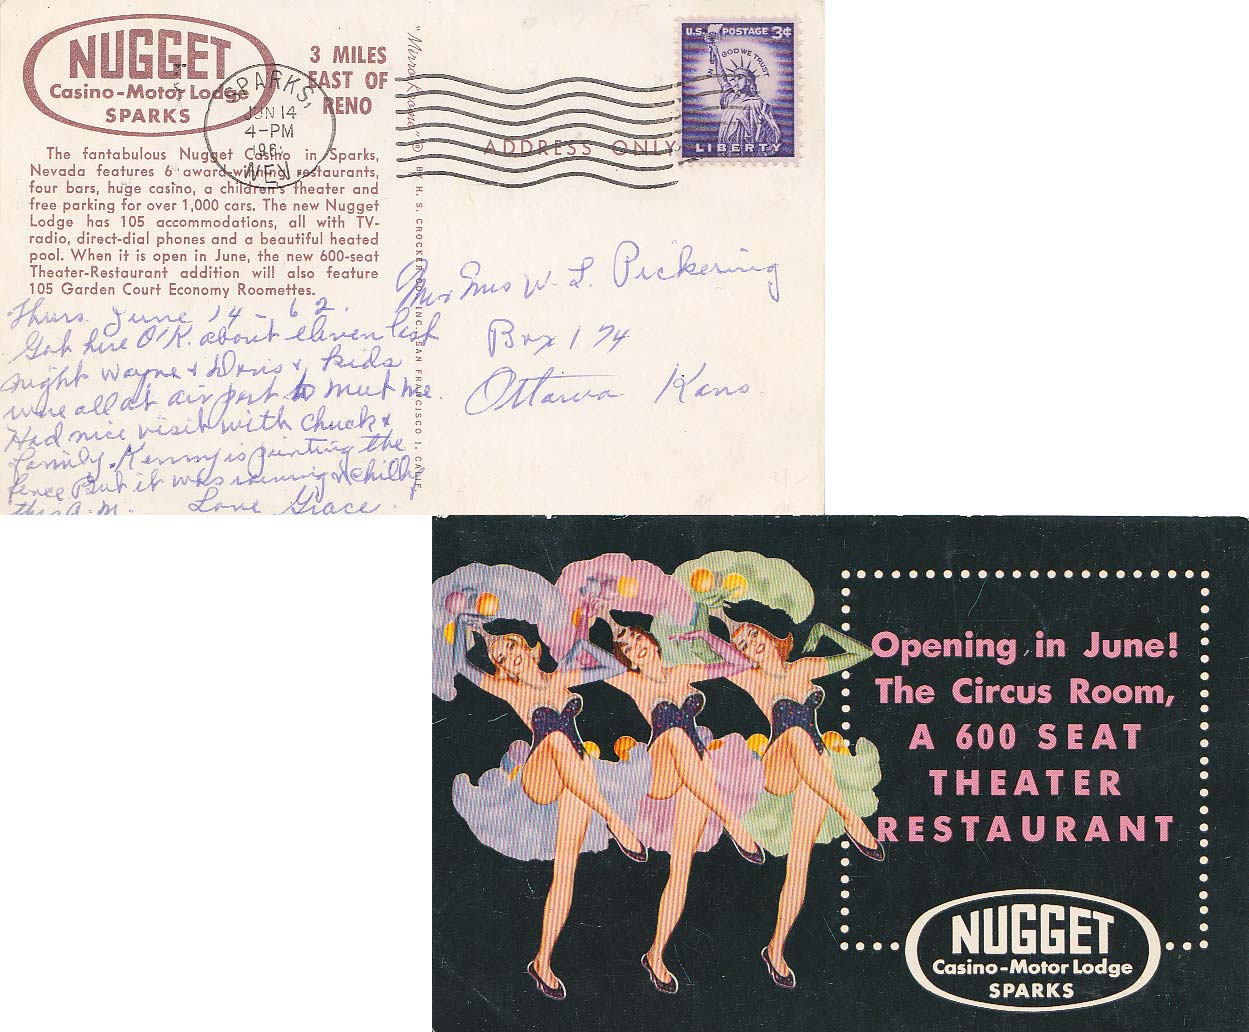 NUGGET
Casino-Motor Lodge
SPARKS
3 MILES
EAST OF
RENO
SPARKS,
JUN 14
4-PM
196
NEV.
U.S. POSTAGE 3¢
IN GOD WE TRUST
LIBERTY
ADDRESS ONLY
The fantabulous Nugget Casino in Sparks,
Nevada features 6 award-winning restaurants,
four bars, huge casino, a children's theater and
free parking for over 1,000 cars. The new Nugget
Lodge has 105 accommodations, all with TV-
radio, direct-dial phones and a beautiful heated
pool. When it is open in June, the new 600-seat
Theater-Restaurant addition will also feature
105 Garden Court Economy Roomettes.
"Mirro-Krome" ® BY H. S. CROCKER CO., INC. SAN FRANCISCO 1, CALIF.
Thurs June 14 - 62.
Got here O'K. about eleven last
night Wayne & Doris & kids
were all at air port to meet me.
Had nice visit with Chuck &
family. Kenny is painting the
fence But it was raining & chilly
this A.M. Love Grace.
Mr & Mrs W. L. Pickering
Box 174
Ottawa Kans.
Opening in June!
The Circus Room,
A 600 SEAT
THEATER
RESTAURANT
NUGGET
Casino-Motor Lodge
SPARKS